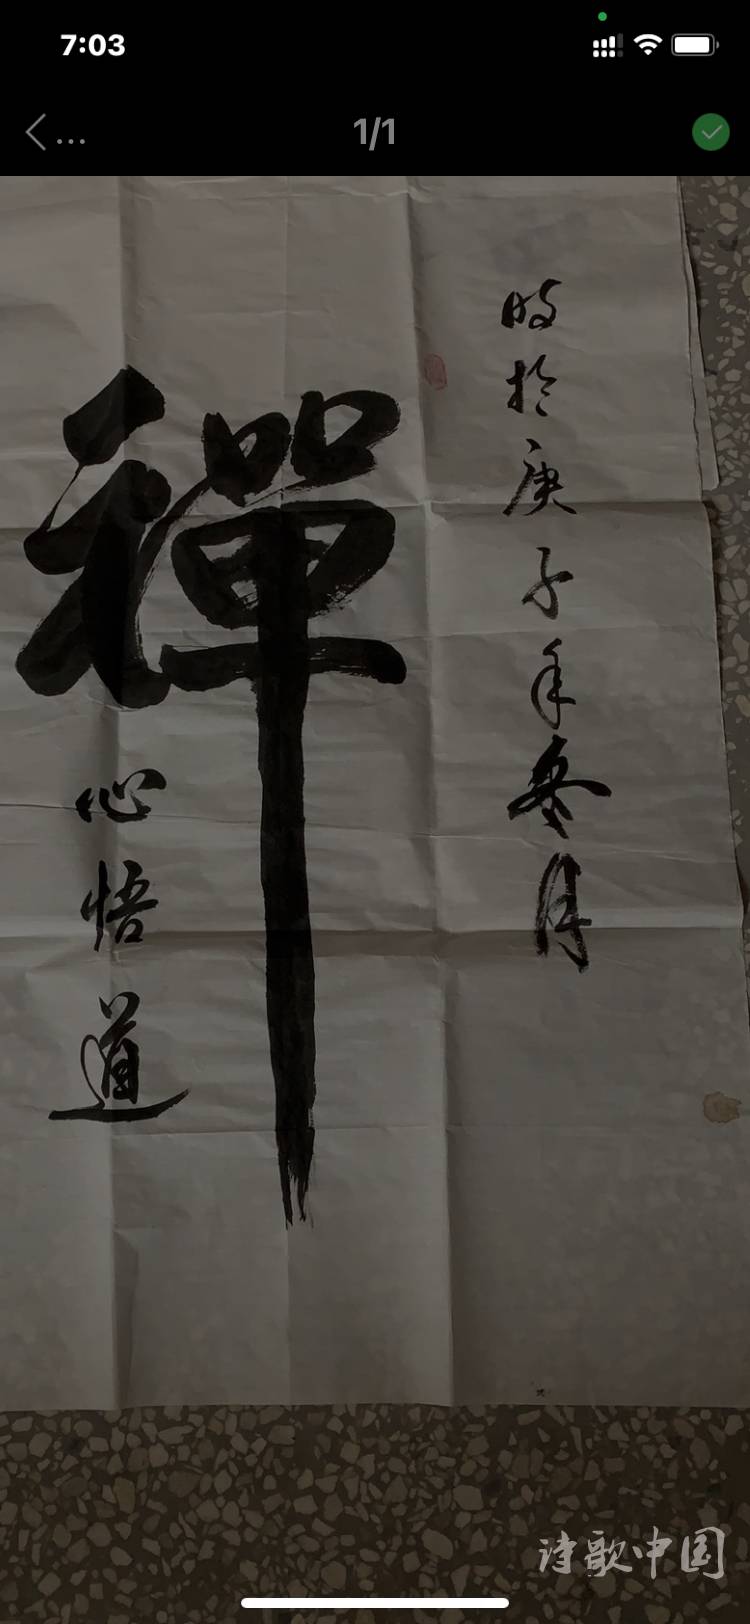 7:03
1/1
...
時於庚子年冬月
禪
心悟道
诗歌中国